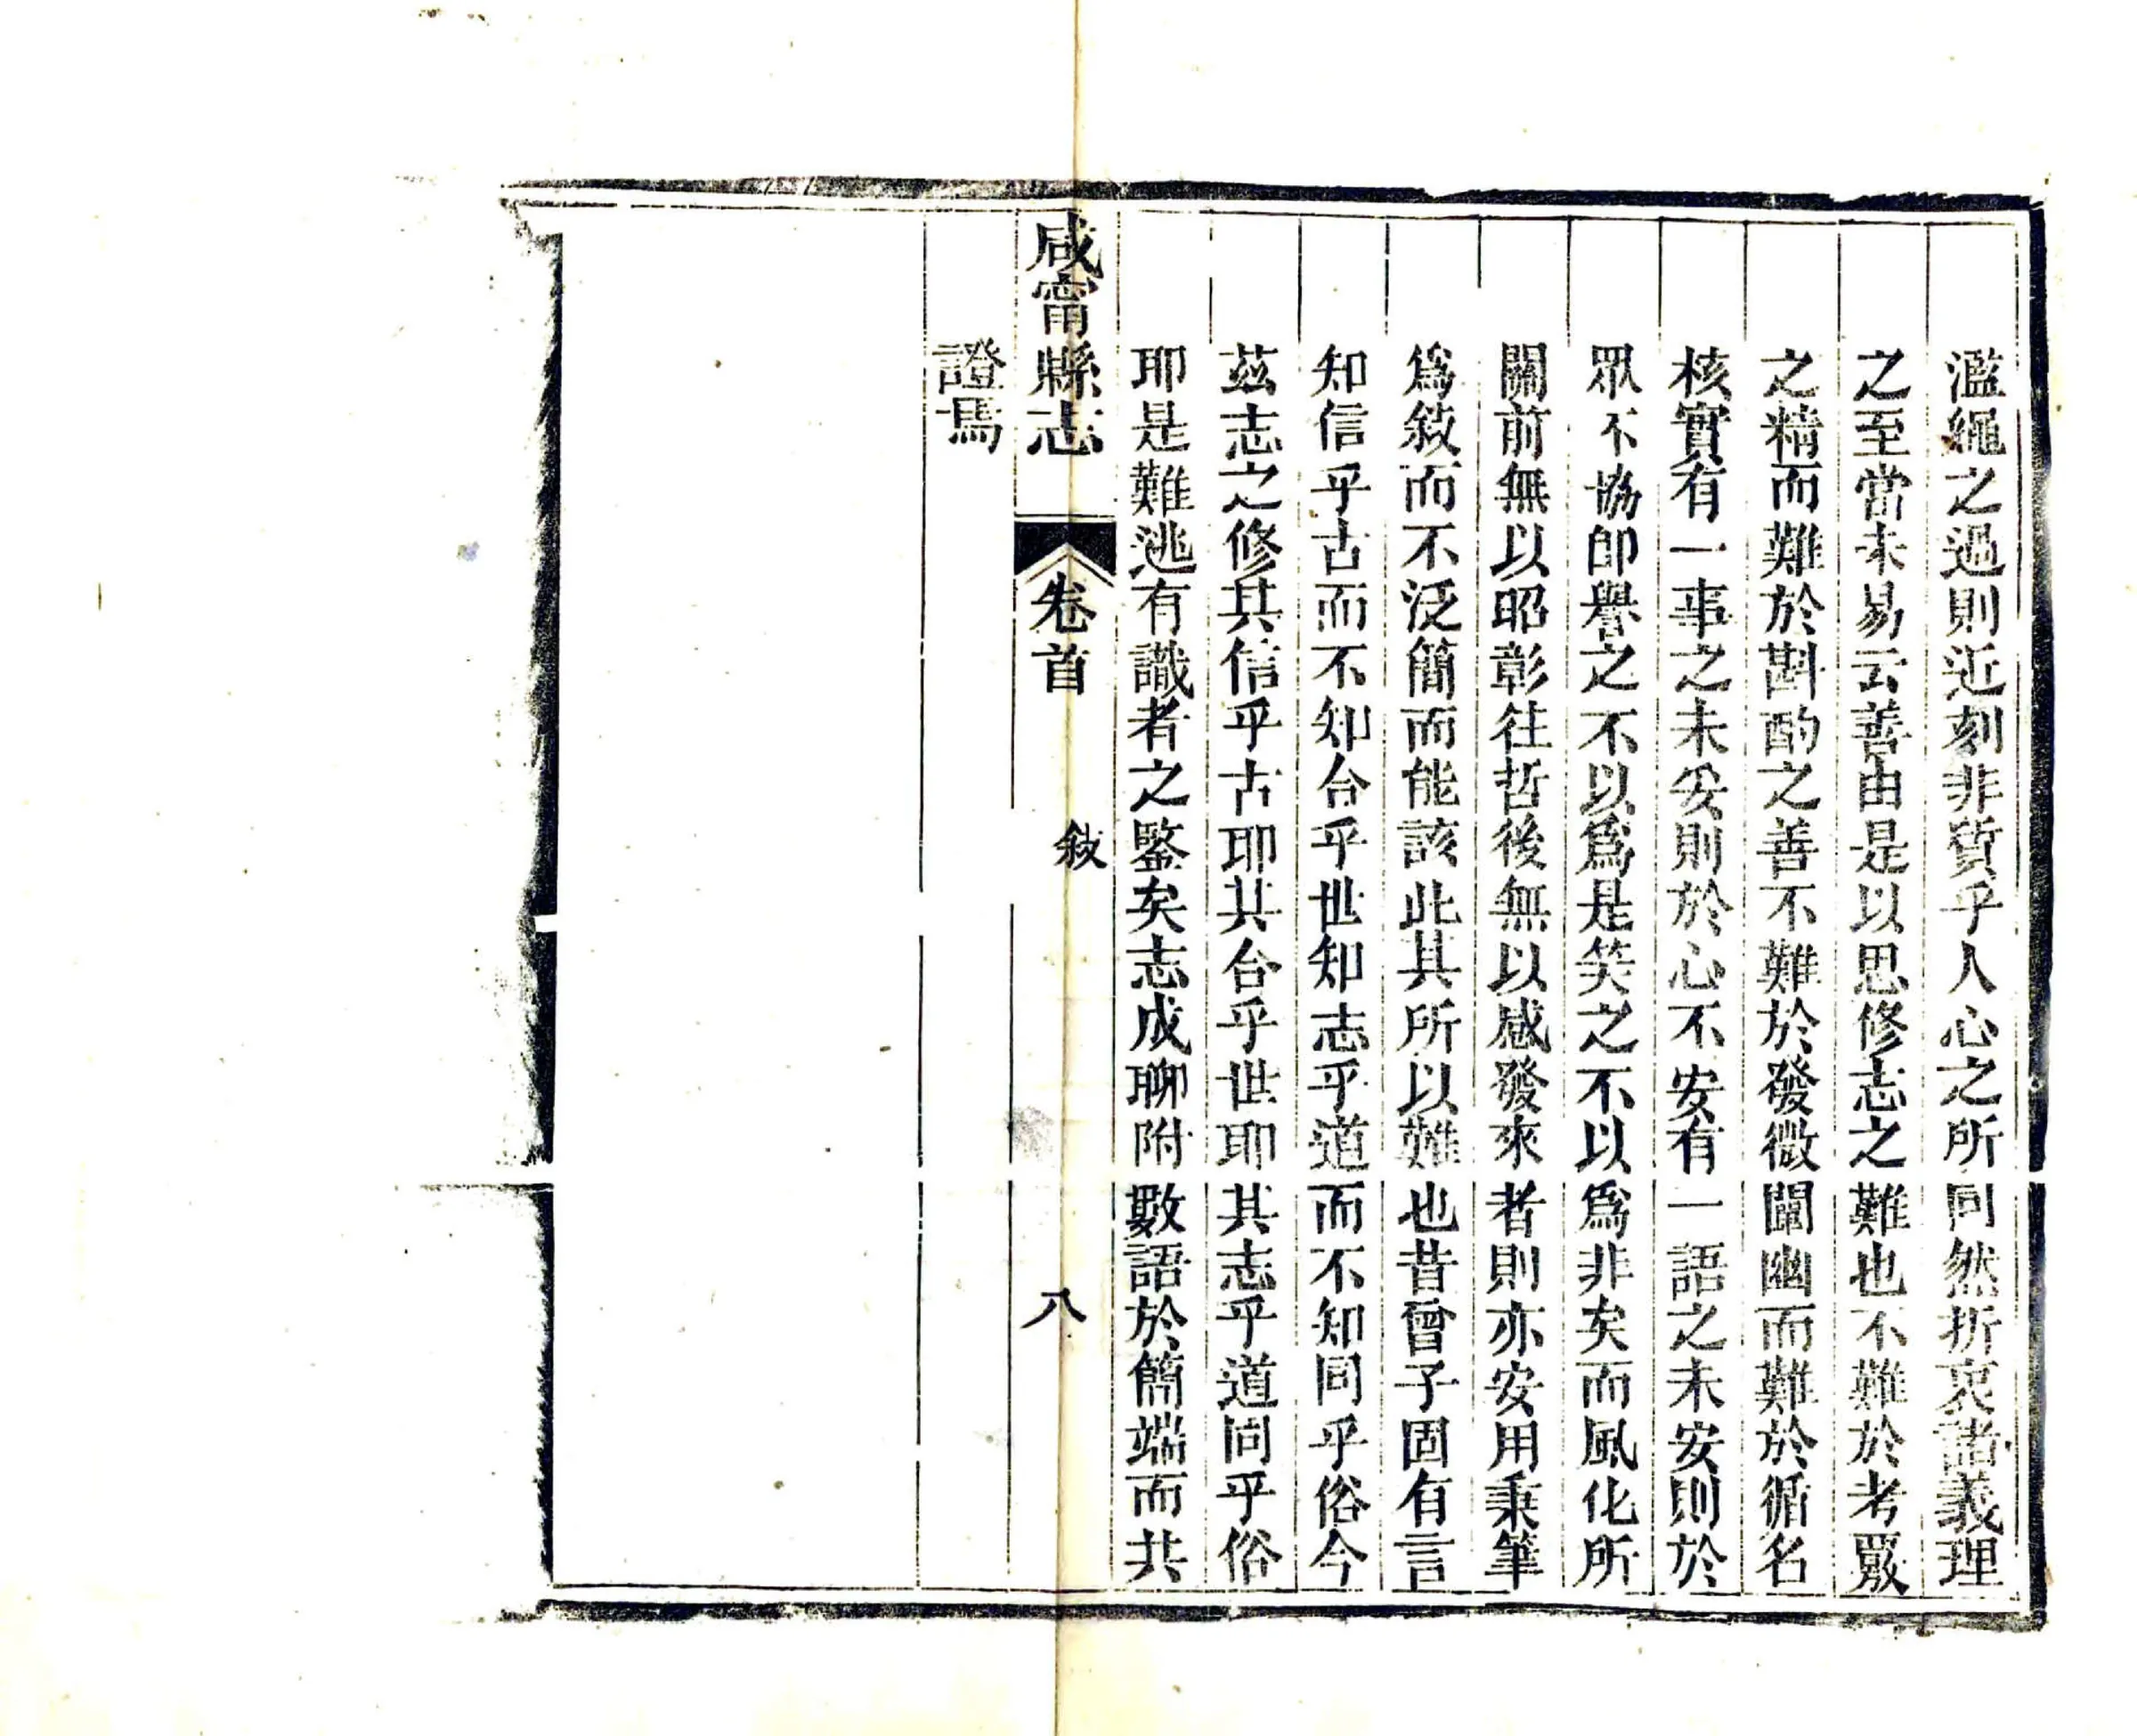 濫繩之過則近刻非質乎人心之所同然折衷諸義理
之至當未易云善由是以思修志之難也不難於考覈
之精而難於斟酌之善不難於發微闡幽而難於循名
核實有一事之未妥則於心不安有一語之未安則於
眾不協卽譽之不以爲是笑之不以爲非矣而風化所
關前無以昭彰往哲後無以感發來者則亦安用秉筆
爲敘而不泛簡而能該此其所以難也昔曾子固有言
知信乎古而不知合乎世知志乎道而不知同乎俗今
茲志之修其信乎古耶其合乎世耶其志乎道同乎俗
耶是難逃有識者之鑒矣志成聊附數語於簡端而共
咸甯縣志
卷首
敘
八
證焉